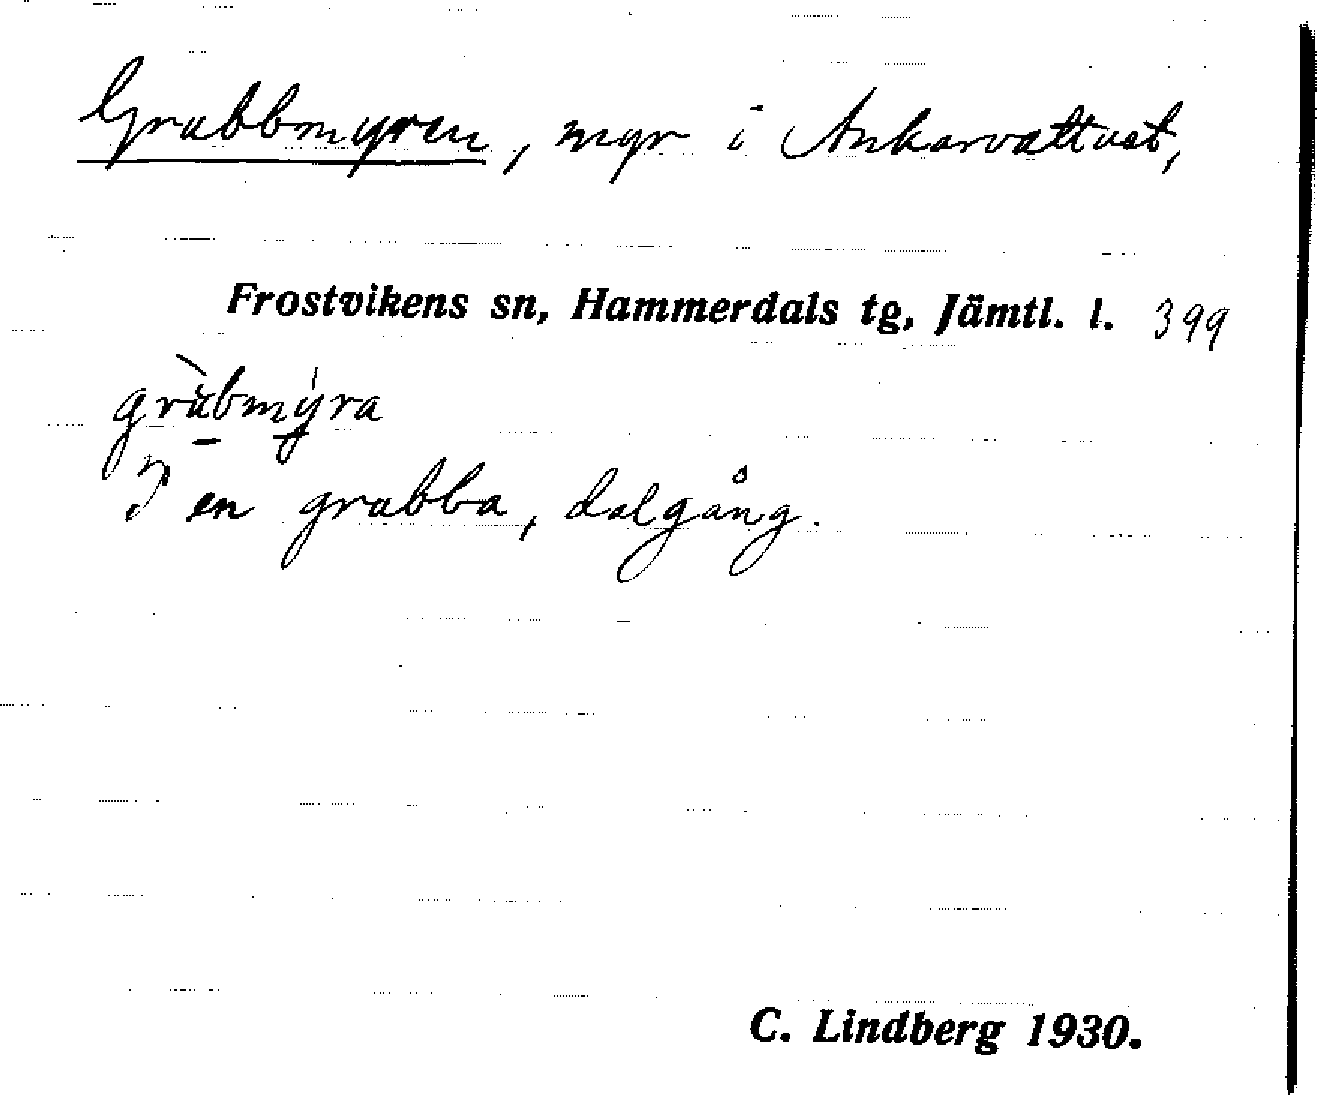 Grubbmyren, myr i Ankarvattnet,
Frostvikens sn, Hammerdals tg, Jämtl. l. 399
grùbmýra
I en grubba, dalgång.
C. Lindberg 1930.